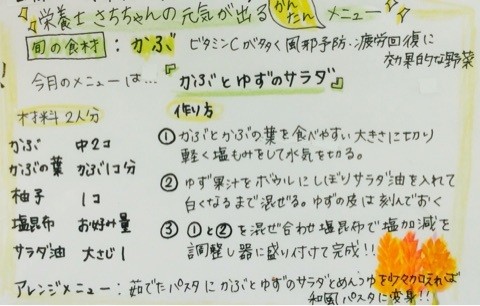 栄養士 さちちゃんの元気が出る かんたん メニュー
旬の食材 : かぶ ビタミンCが多く風邪予防・疲労回復に
効果的な野菜
今月のメニューは… 『かぶとゆずのサラダ』
材料 2人分
かぶ 中2コ
かぶの葉 かぶ1コ分
柚子 1コ
塩昆布 お好み量
サラダ油 大さじ1
作り方
① かぶとかぶの葉を食べやすい大きさに切り
軽く塩もみをして水気を切る。
② ゆず果汁をボウルにしぼりサラダ油を入れて
白くなるまで混ぜる。ゆずの皮は刻んでおく
③ ①と②を混ぜ合わせ塩昆布で塩加減を
調整し器に盛り付けて完成!!
アレンジメニュー : 茹でたパスタにかぶとゆずのサラダとめんつゆを少々加えれば
和風パスタに変身!!